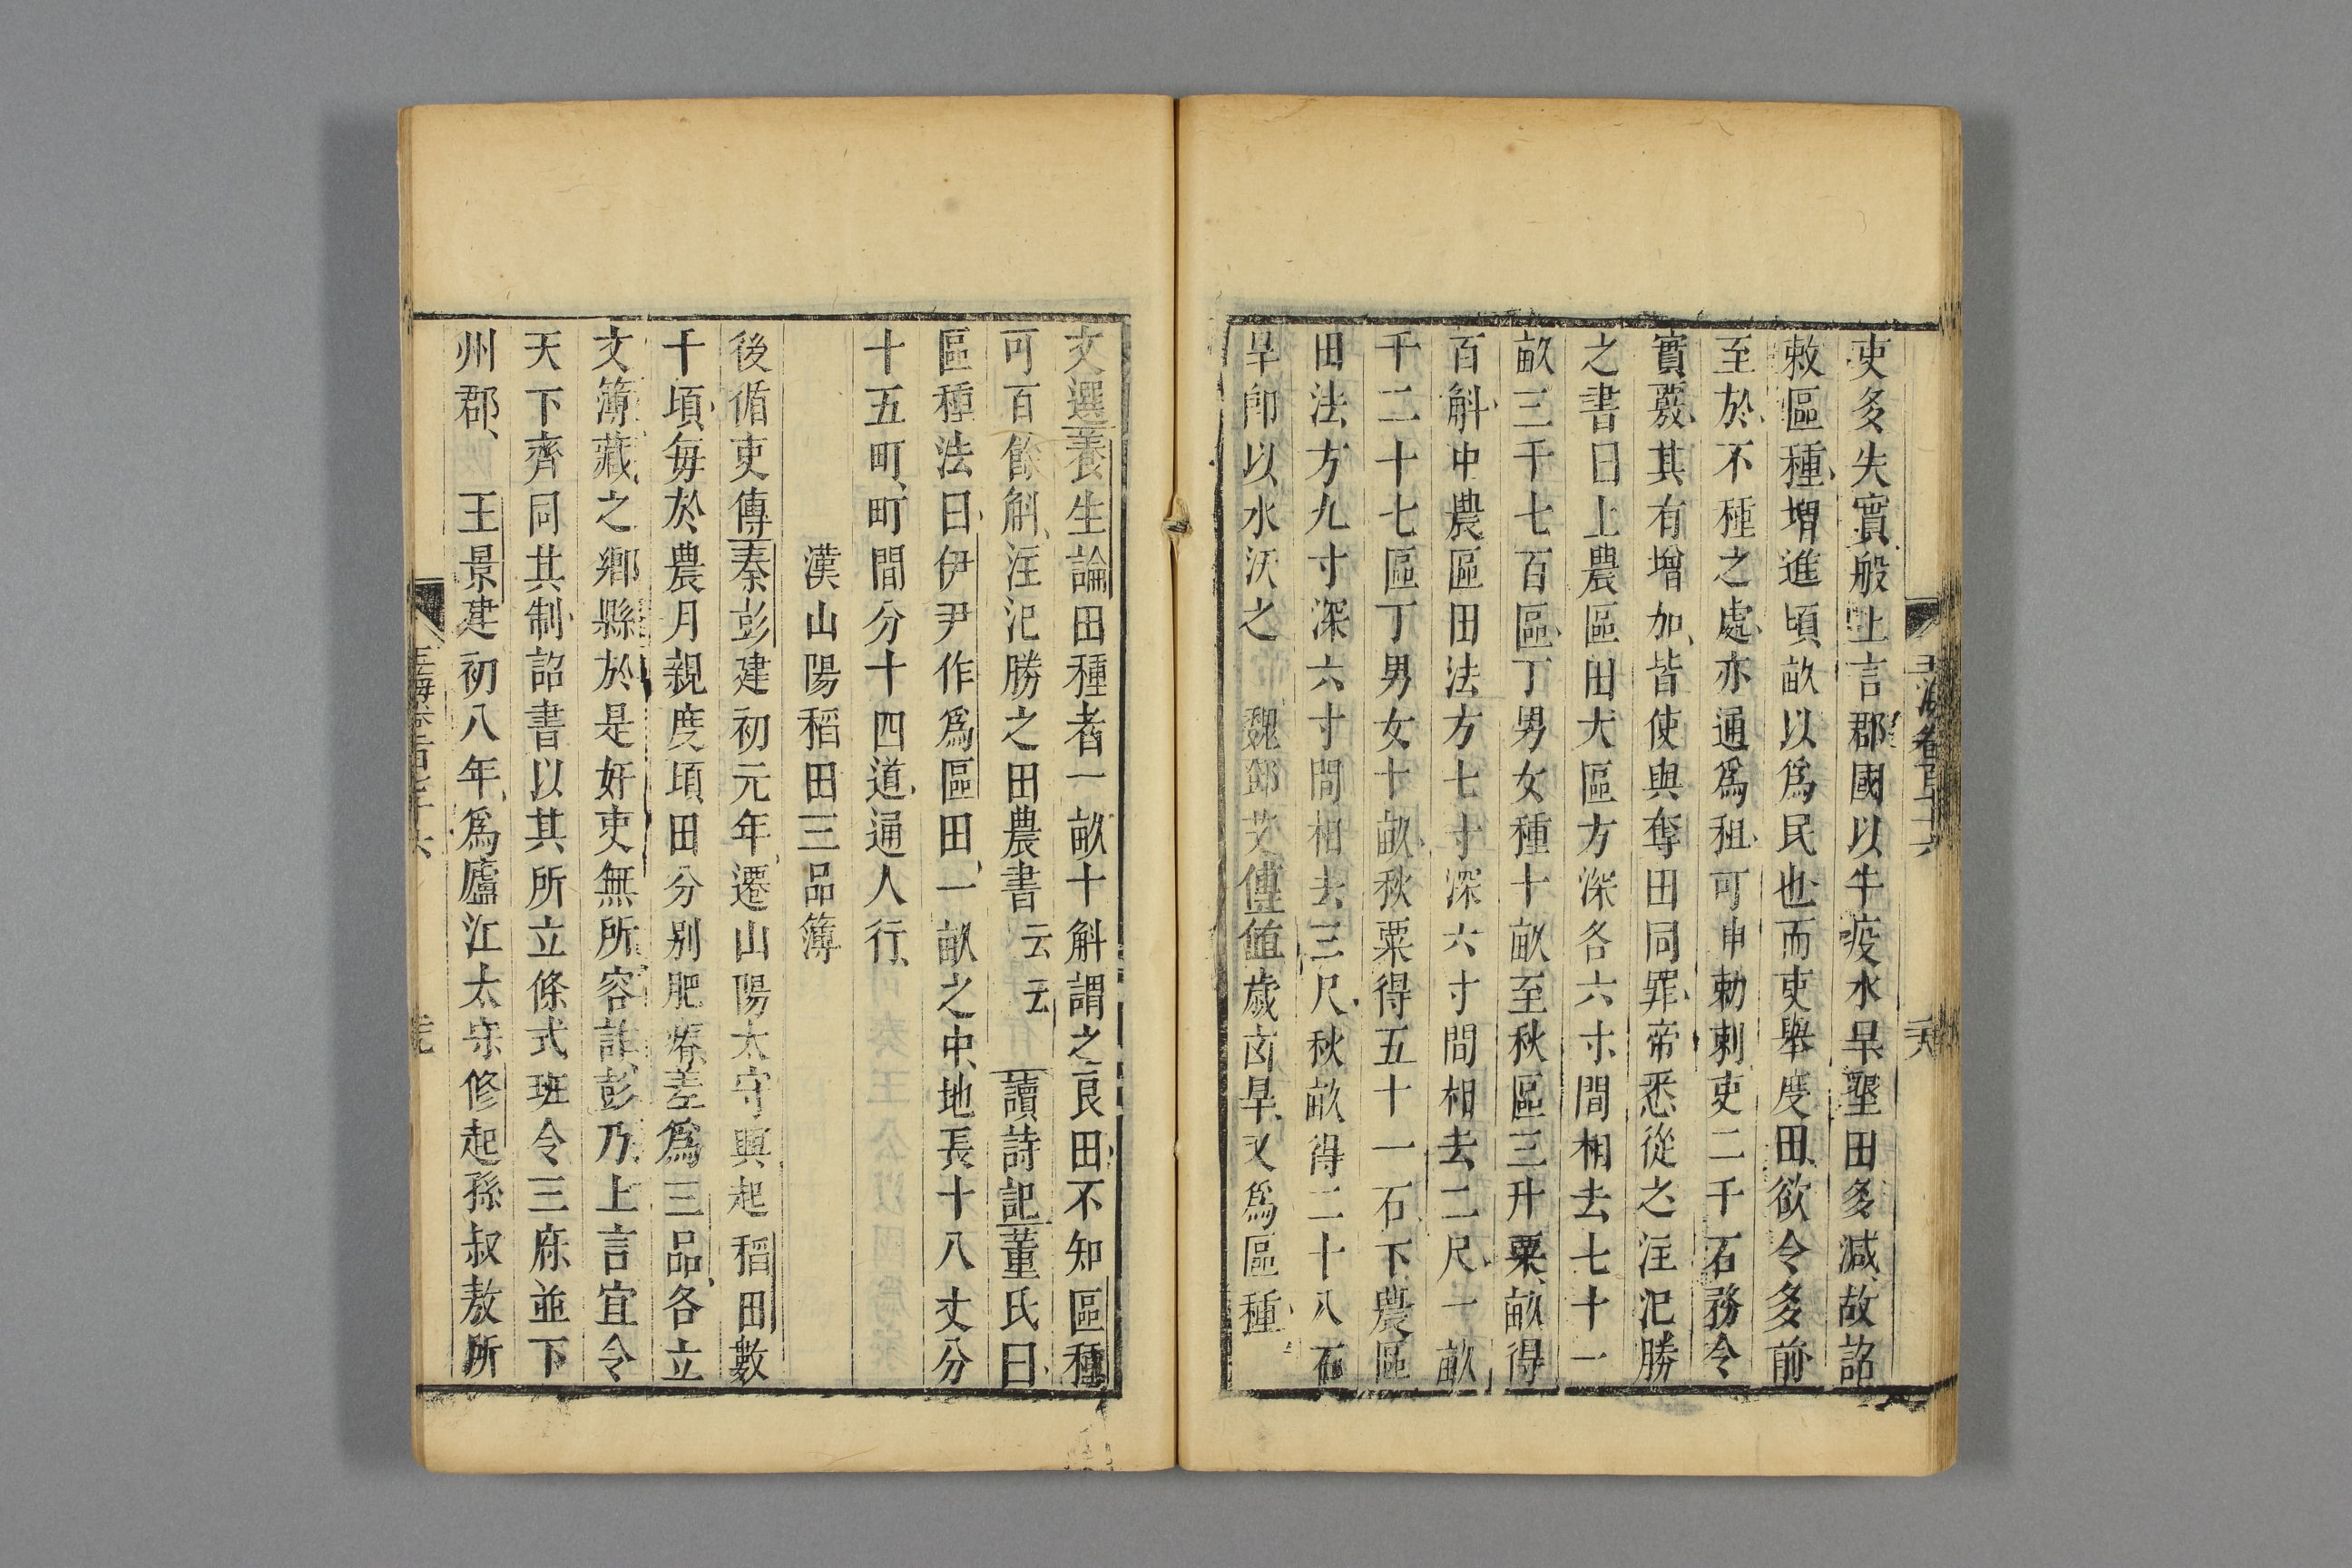 吏多失實般上言郡國以牛疫水旱墾田多減故詔
敕區種增進頃畝以爲民也而吏舉度田欲令多前
至於不種之處亦通爲租可申勅刺史二千石務令
實覈其有增加皆使與奪田同罪帝悉從之注氾勝
之書曰上農區田大區方深各六寸間相去七十一
畝三千七百區丁男女種十畝至秋區三升粟畝得
百斛中農區田法方七寸深六寸間相去二尺一畝
千二十七區丁男女十畝秋粟得五十一石下農區
田法方九寸深六寸間相去三尺秋畝得二十八石
旱卽以水沃之　魏鄧艾傳値歲凶旱又爲區種
文選養生論田種者一畝十斛謂之良田不知區種
可百餘斛注氾勝之田農書云云　讀詩記董氏曰
區種法曰伊尹作爲區田一畝之中地長十八丈分
十五町町間分十四道通人行
漢山陽稻田三品簿
後循吏傳秦彭建初元年遷山陽太守興起稻田數
千頃每於農月親度頃田分别肥瘠差爲三品各立
文簿藏之鄉縣於是奸吏無所容詐彭乃上言宜令
天下齊同其制詔書以其所立條式班令三府並下
州郡　王景建初八年爲廬江太守修起孫叔敖所